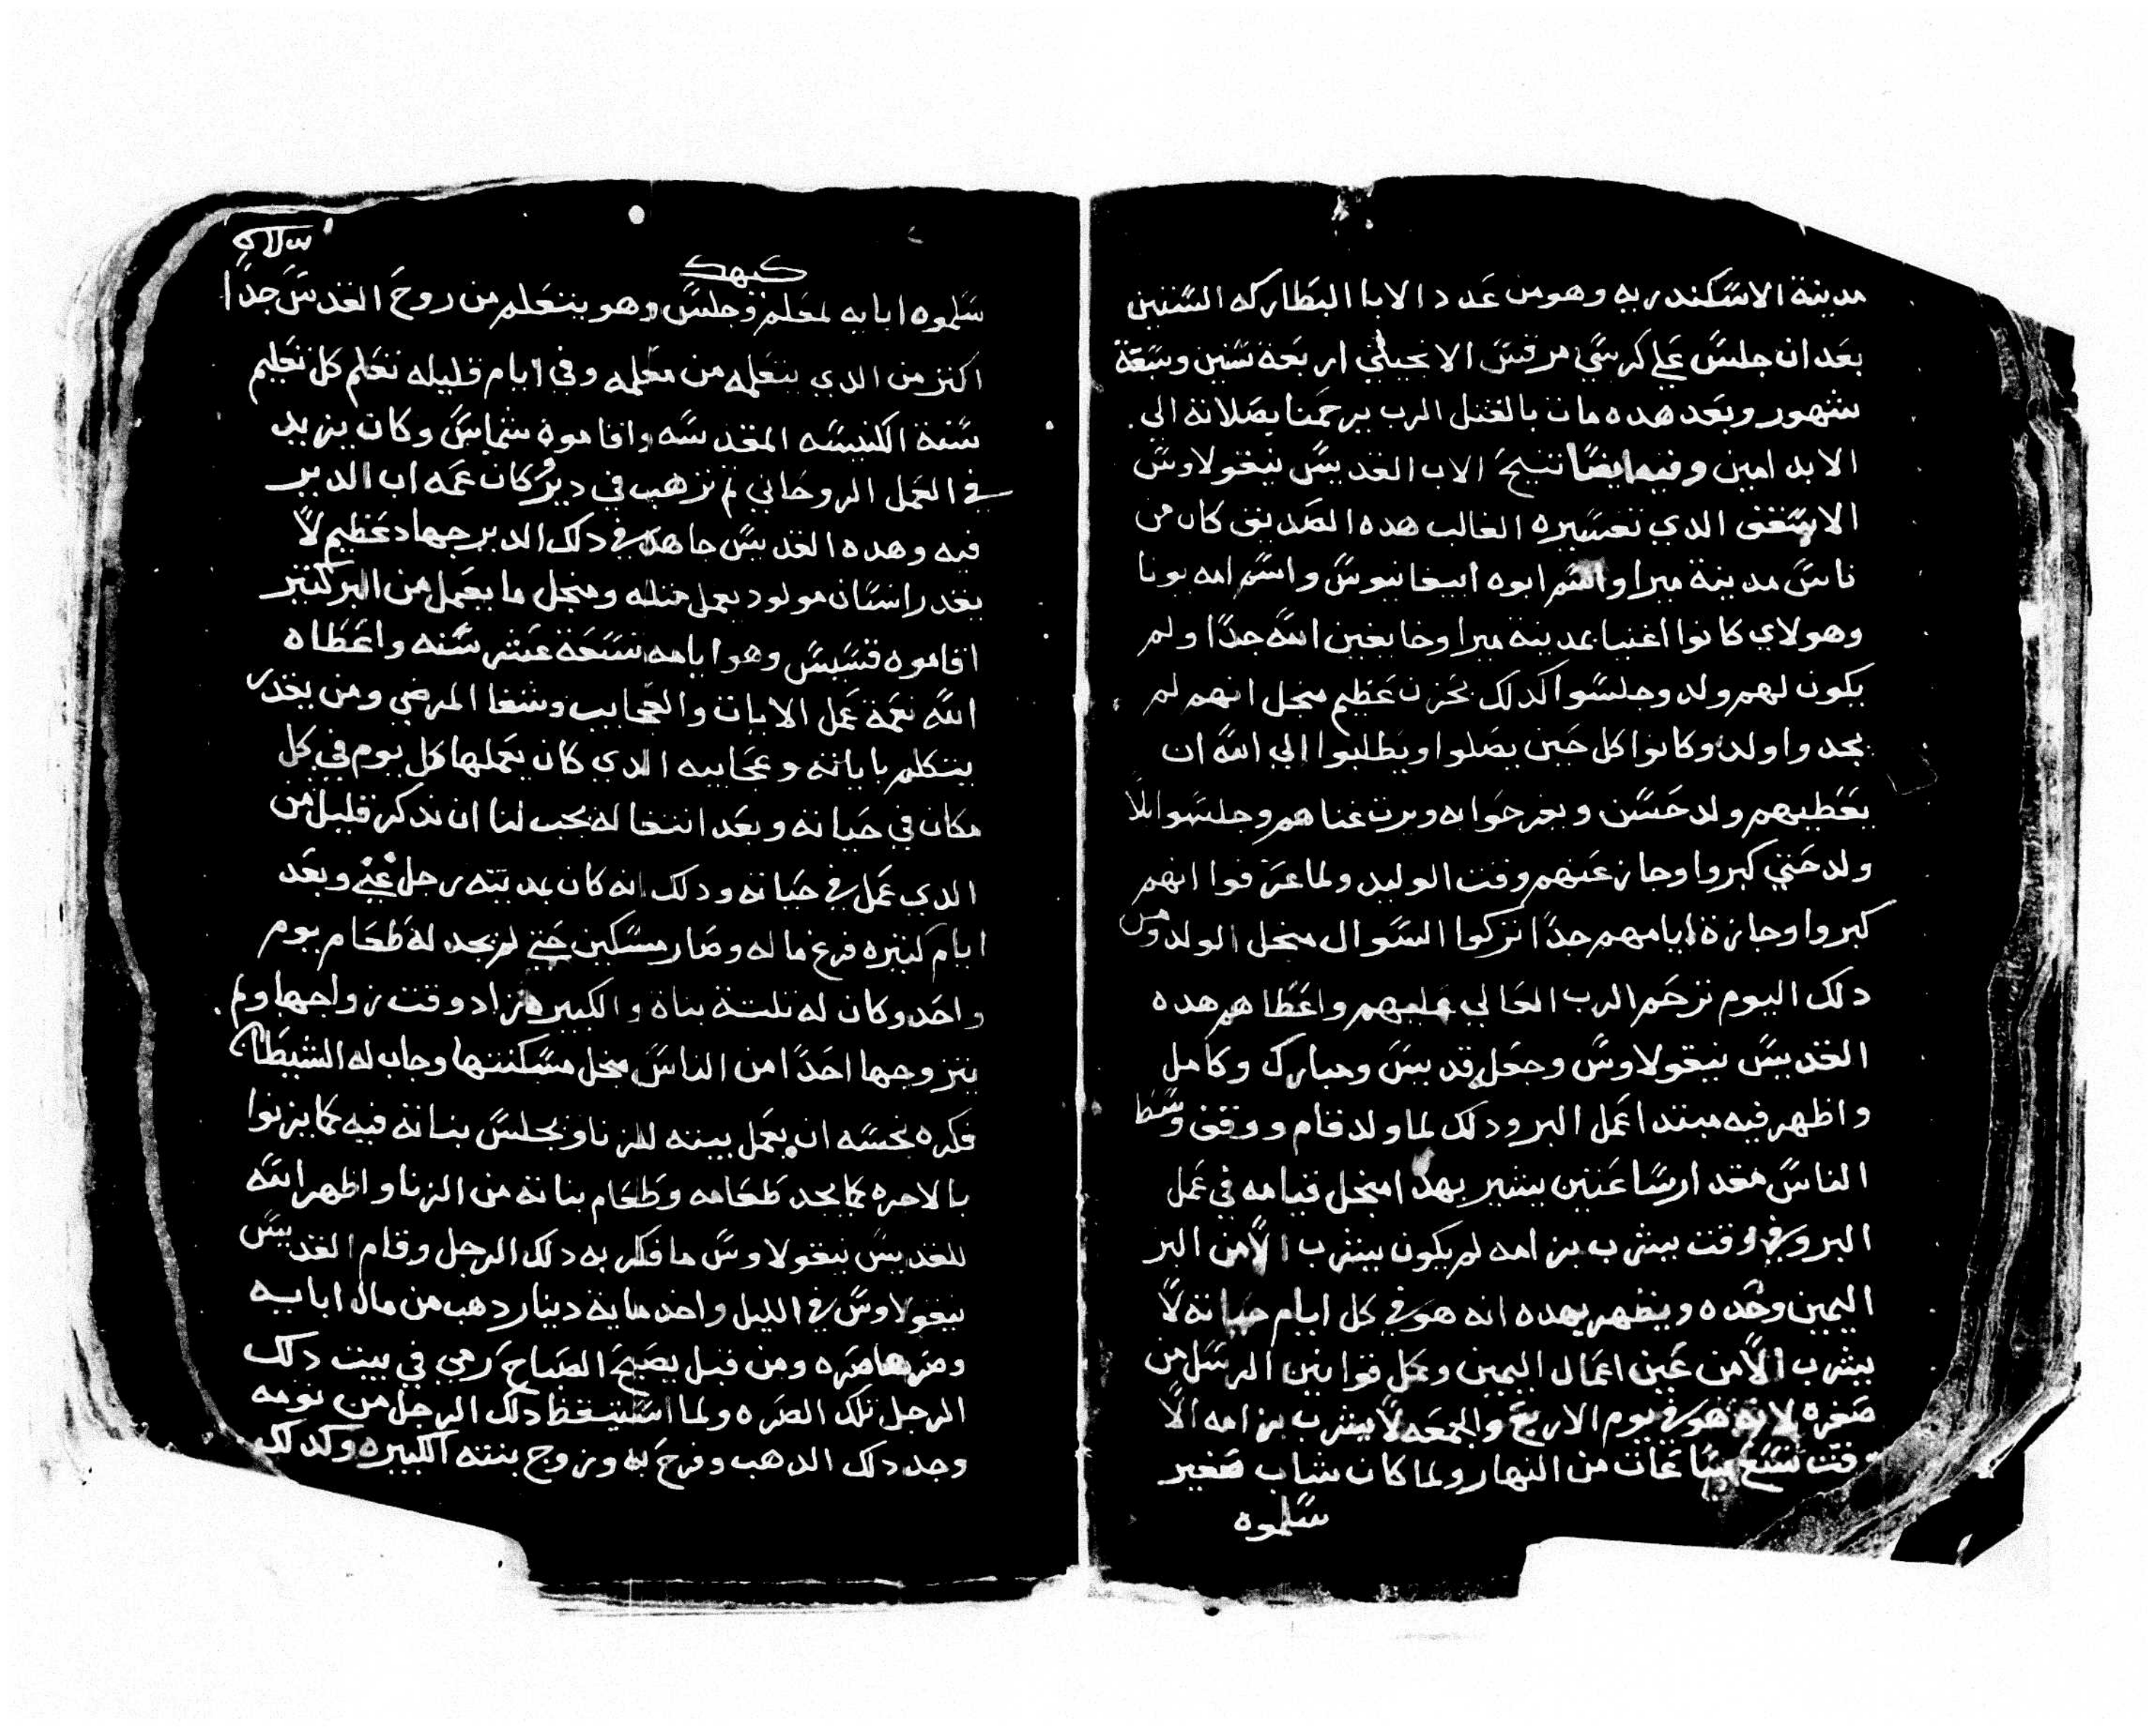 مدينة الاسكندريه وهو من عدد الابا البطاركه الستين
بعد ان جلس علي كرسي مرقس الانجيلي اربعة سنين وسبعة
شهور وبعد هده مات بالغتل الرب يرحمنا بصلاته الى
الابد امين وفيه ايضا تنيح الاب الغديس نيغولاوس
الاسغف الدي تعسيره الغالب هده الصديق كان من
ناس مدينة ميرا واسم ابوه ابيفانيوس واسم امه يونا
وهولاي كانوا اغنيا بمدينة ميرا وخايغين الله جدا ولم
يكون لهم ولد وجلسوا كدلك بحزن عظيم منجل انهم لم
يجدوا ولد وكانوا كل حين يصلوا ويطلبوا الي الله ان
يعطيهم ولد حسن ويفرحوا به ويرت غناهم وجلسوا بلا
ولد حتي كبروا وجاز عنهم وقت الوليد ولما عرفوا انهم
كبروا وجازة ايامهم جدا تركوا السوال منجل الولد ومن
دلك اليوم ترحم الرب العالي عليهم واعطاهم هده
الغديس نيقولاوس وجعله قديس ومبارك وكامل
واظهر فيه مبتدا عمل البر ودلك لما ولد قام ووقف وسط
الناس مقدار ساعتين يشير بهدا منجل قيامه في عمل
البر وفي وقت يشرب بز امه لم يكون يشرب الا من البز
اليمين وحده ويظهر بهده انه هو في كل ايام حياته لا
يشرب الا من عين اعمال اليمين وعمل قوانين الرسل من
صغره لانه هو في يوم الاربع والجمعه لا يشرب بز امه الا
وقت تسع ساعات من النهار ولما كان شاب صغير
سلموه
كيهك
سلموه ابايه لمعلم وجلس وهو يتعلم من روح الغدس جدا
اكتر من الدي يتعلمه من معلمه وفي ايام قليله تعلم كل تعليم
سنة الكنيسه المقدسه واقاموه شماس وكان يزيد
في العمل الروحاني تم ترهب في دير وكان عمه اب الدير
فيه وهده الغديس جاهد في دلك الدير جهاد عظيم لا
يغدر انسان مولود يعمل متله ومنجل ما يعمل من البر كتير
اقاموه قسيس وهو ايامه تسعة عشر سنه واعطاه
الله نعمة عمل الايات والعجايب وشفا المرضي ومن يغدر
يتكلم باياته وعجايبه الدي كان يعملها كل يوم في كل
مكان في حياته وبعد انتغاله يجب لنا ان ندكر قليل من
الدي عمل في حياته ودلك انه كان بمدينته رجل غني وبعد
ايام كتيره فرغ ماله وصار مسكين حتي لم يجد له طعام يوم
واحد وكان له تلتة بناة والكبيره زاد وقت زواجها ولم
يتزوجها احدا من الناس منجل مسكنتها وجاب له الشيطان
فكره نجسه ان يعمل بيته للزنا ويجلس بناته فيه كما يزنوا
بالاجره كما يجد طعامه وطعام بناته من الزنا واظهر الله
للغديس نيغولاوس ما فكر به دلك الرجل وقام الغديس
نيغولاوس في الليل واخد ماية دينار دهب من مال ابايه
وصرها صره ومن قبل يصبح الصباح رمي في بيت دلك
الرجل تلك الصره ولما استيقظ دلك الرجل من نومه
وجد دلك الدهب وفرح به وزوج بنته الكبيره وكدلك